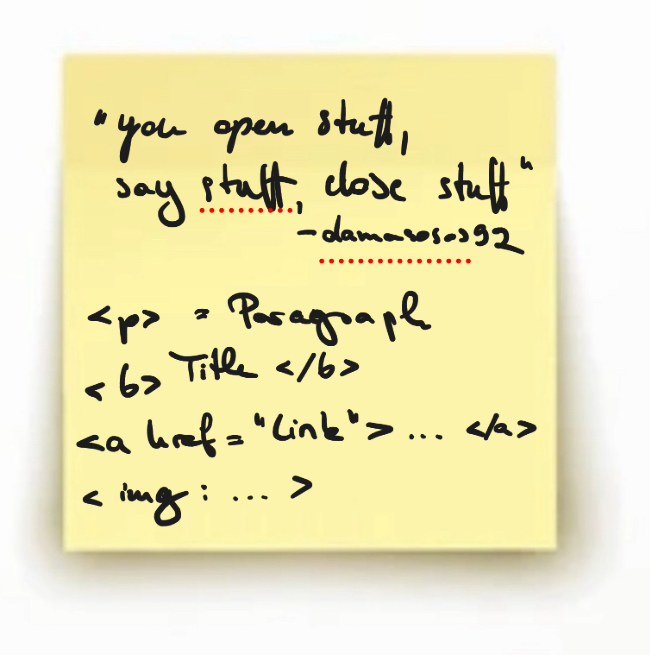 "you open stuff,
say stuff, close stuff"
- damasosos92
<p> = Paragraph
<b> Title </b>
<a href="Link"> ... </a>
<img: ... >